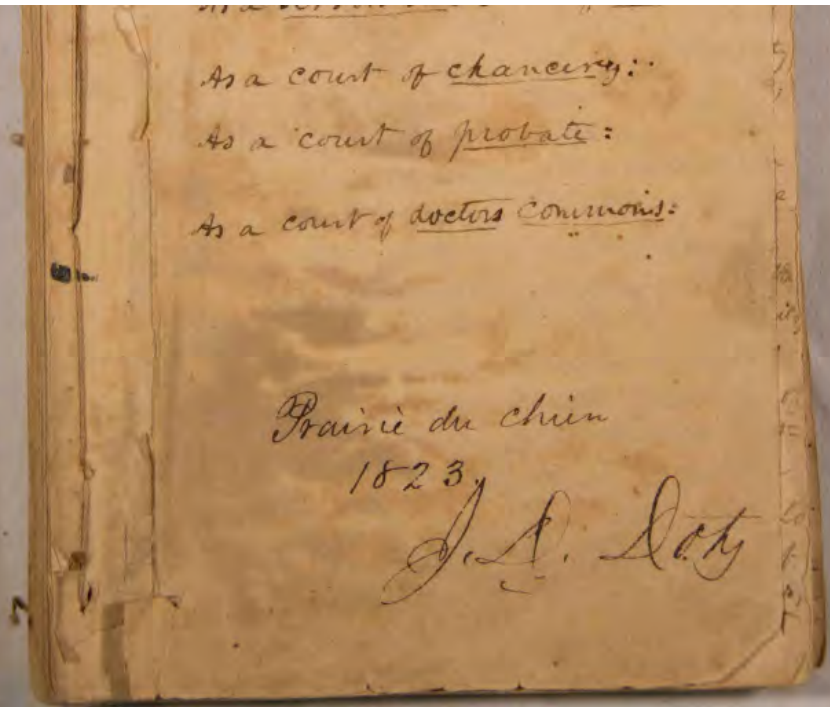 As a
As a court of chancery:
As a court of probate:
As a court of doctors commons:
Prairie du chien
1823.
J. D. Doty